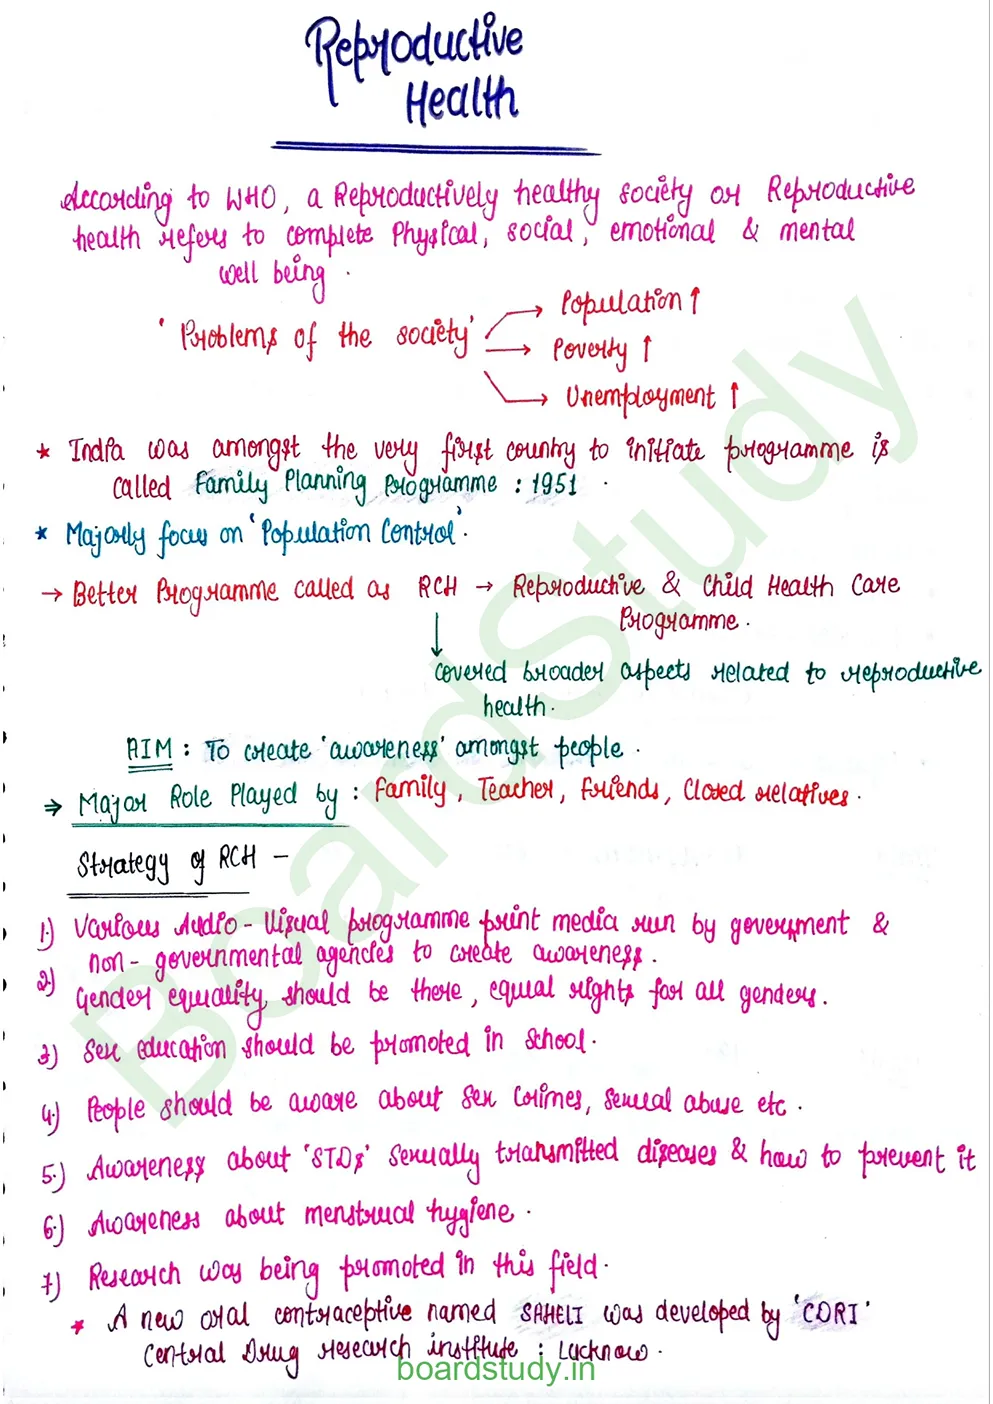 Reproductive
Health
According to WHO, a Reproductively healthy society or Reproductive
health refers to complete Physical, social, emotional & mental
well being.
'Problems of the society' → Population ↑
→ Poverty ↑
→ Unemployment ↑
* India was amongst the very first country to initiate programme is
called Family Planning Programme : 1951.
* Majorly focus on 'Population Control'.
→ Better Programme called as RCH → Reproductive & Child Health Care
Programme.
↓
covered broader aspects related to reproductive
health.
AIM : To create 'awareness' amongst people.
⇒ Major Role Played by : Family, Teacher, Friends, Closed relatives.
Strategy of RCH –
1.) Various Audio-Visual programme print media run by government &
non-governmental agencies to create awareness.
2.) Gender equality should be there, equal rights for all genders.
3) Sex education should be promoted in school.
4.) People should be aware about sex crimes, sexual abuse etc.
5.) Awareness about 'STDs' Sexually transmitted diseases & how to prevent it
6.) Awareness about menstrual hygiene.
7.) Research was being promoted in this field.
* A new oral contraceptive named SAHELI was developed by 'CDRI'
Central Drug research institute : Lucknow.
boardstudy.in
BoardStudy